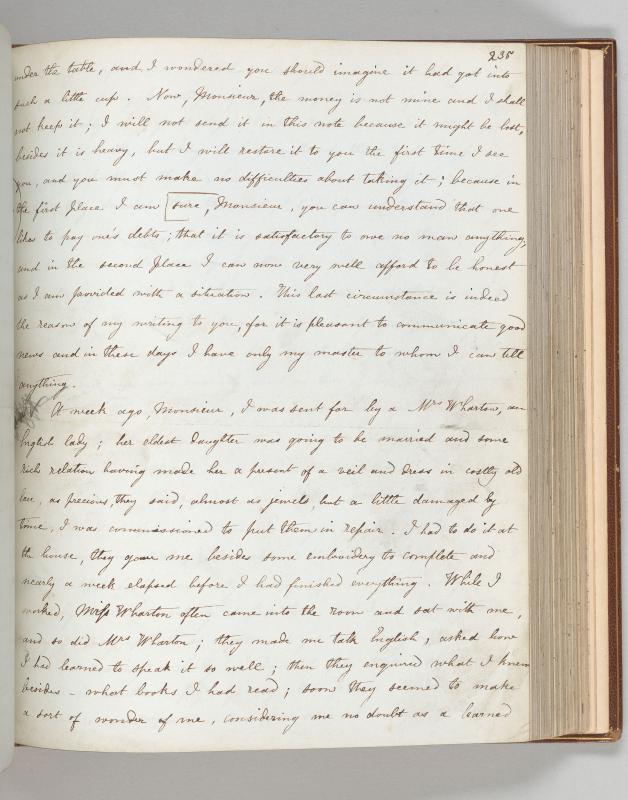 235
under the table, and I wondered you should imagine it had got into
such a little cup. Now, Monsieur, the money is not mine and I shall
not keep it; I will not send it in this note because it might be lost,
besides it is heavy, but I will restore it to you the first time I see
you, and you must make no difficulties about taking it; because in
the first place I am sure, Monsieur, you can understand that one
likes to pay one's debts; that it is satisfactory to owe no man anything;
and in the second place I can now very well afford to be honest
as I am provided with a situation. This last circumstance is indeed
the reason of my writing to you, for it is pleasant to communicate good
news and in these days I have only my master to whom I can tell
anything.
A week ago, Monsieur, I was sent for by a Mrs Wharton, an
English lady; her eldest daughter was going to be married and some
rich relation having made her a present of a veil and dress in costly old
lace, as precious, they said, almost as jewels, but a little damaged by
time, I was commissioned to put them in repair. I had to do it at
the house, they gave me besides some embroidery to complete and
nearly a week elapsed before I had finished everything. While I
worked, Miss Wharton often came into the room and sat with me,
and so did Mrs Wharton; they made me talk English, asked how
I had learned to speak it so well; then they enquired what I knew
besides - what books I had read; soon they seemed to make
a sort of wonder of me, considering me no doubt as a learned